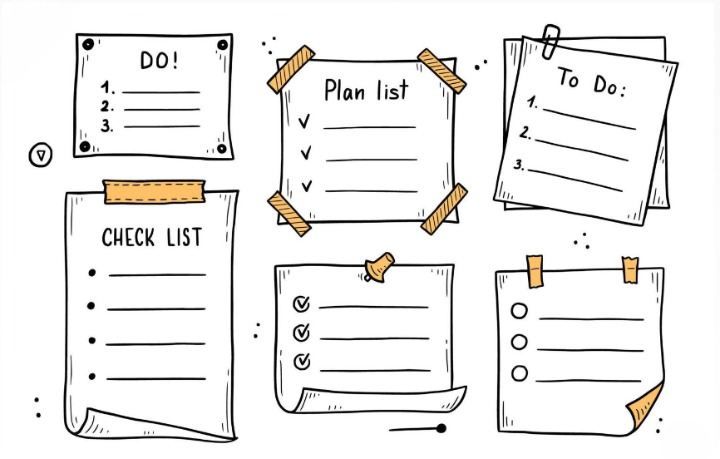 DO!
1.
2.
3.
Plan list
To Do:
1.
2.
3.
CHECK LIST